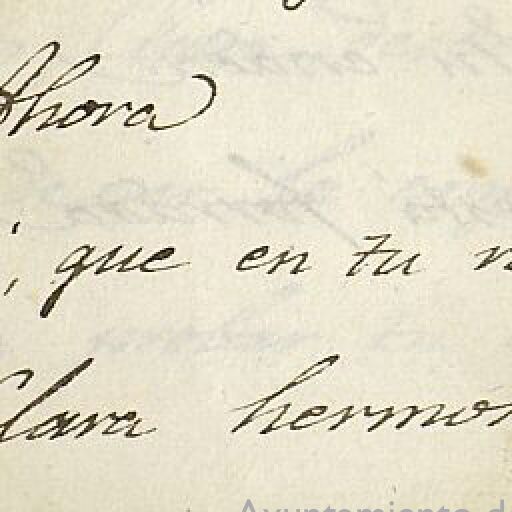 Ahora
, que en tu
Clara hermos
Ayuntamiento d